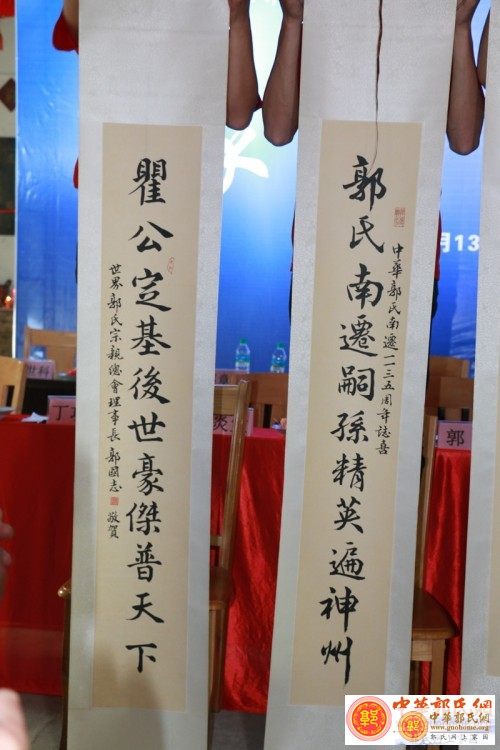 郭氏南遷嗣孫精英遍神州
中華郭氏南遷一一三五周年誌喜
瞿公定基後世豪傑普天下
世界郭氏宗親總會理事長郭國志敬賀
月13
世科
丁
郭
中华郭氏網
中華郭氏網
www.guohome.org
郭氏网上家園